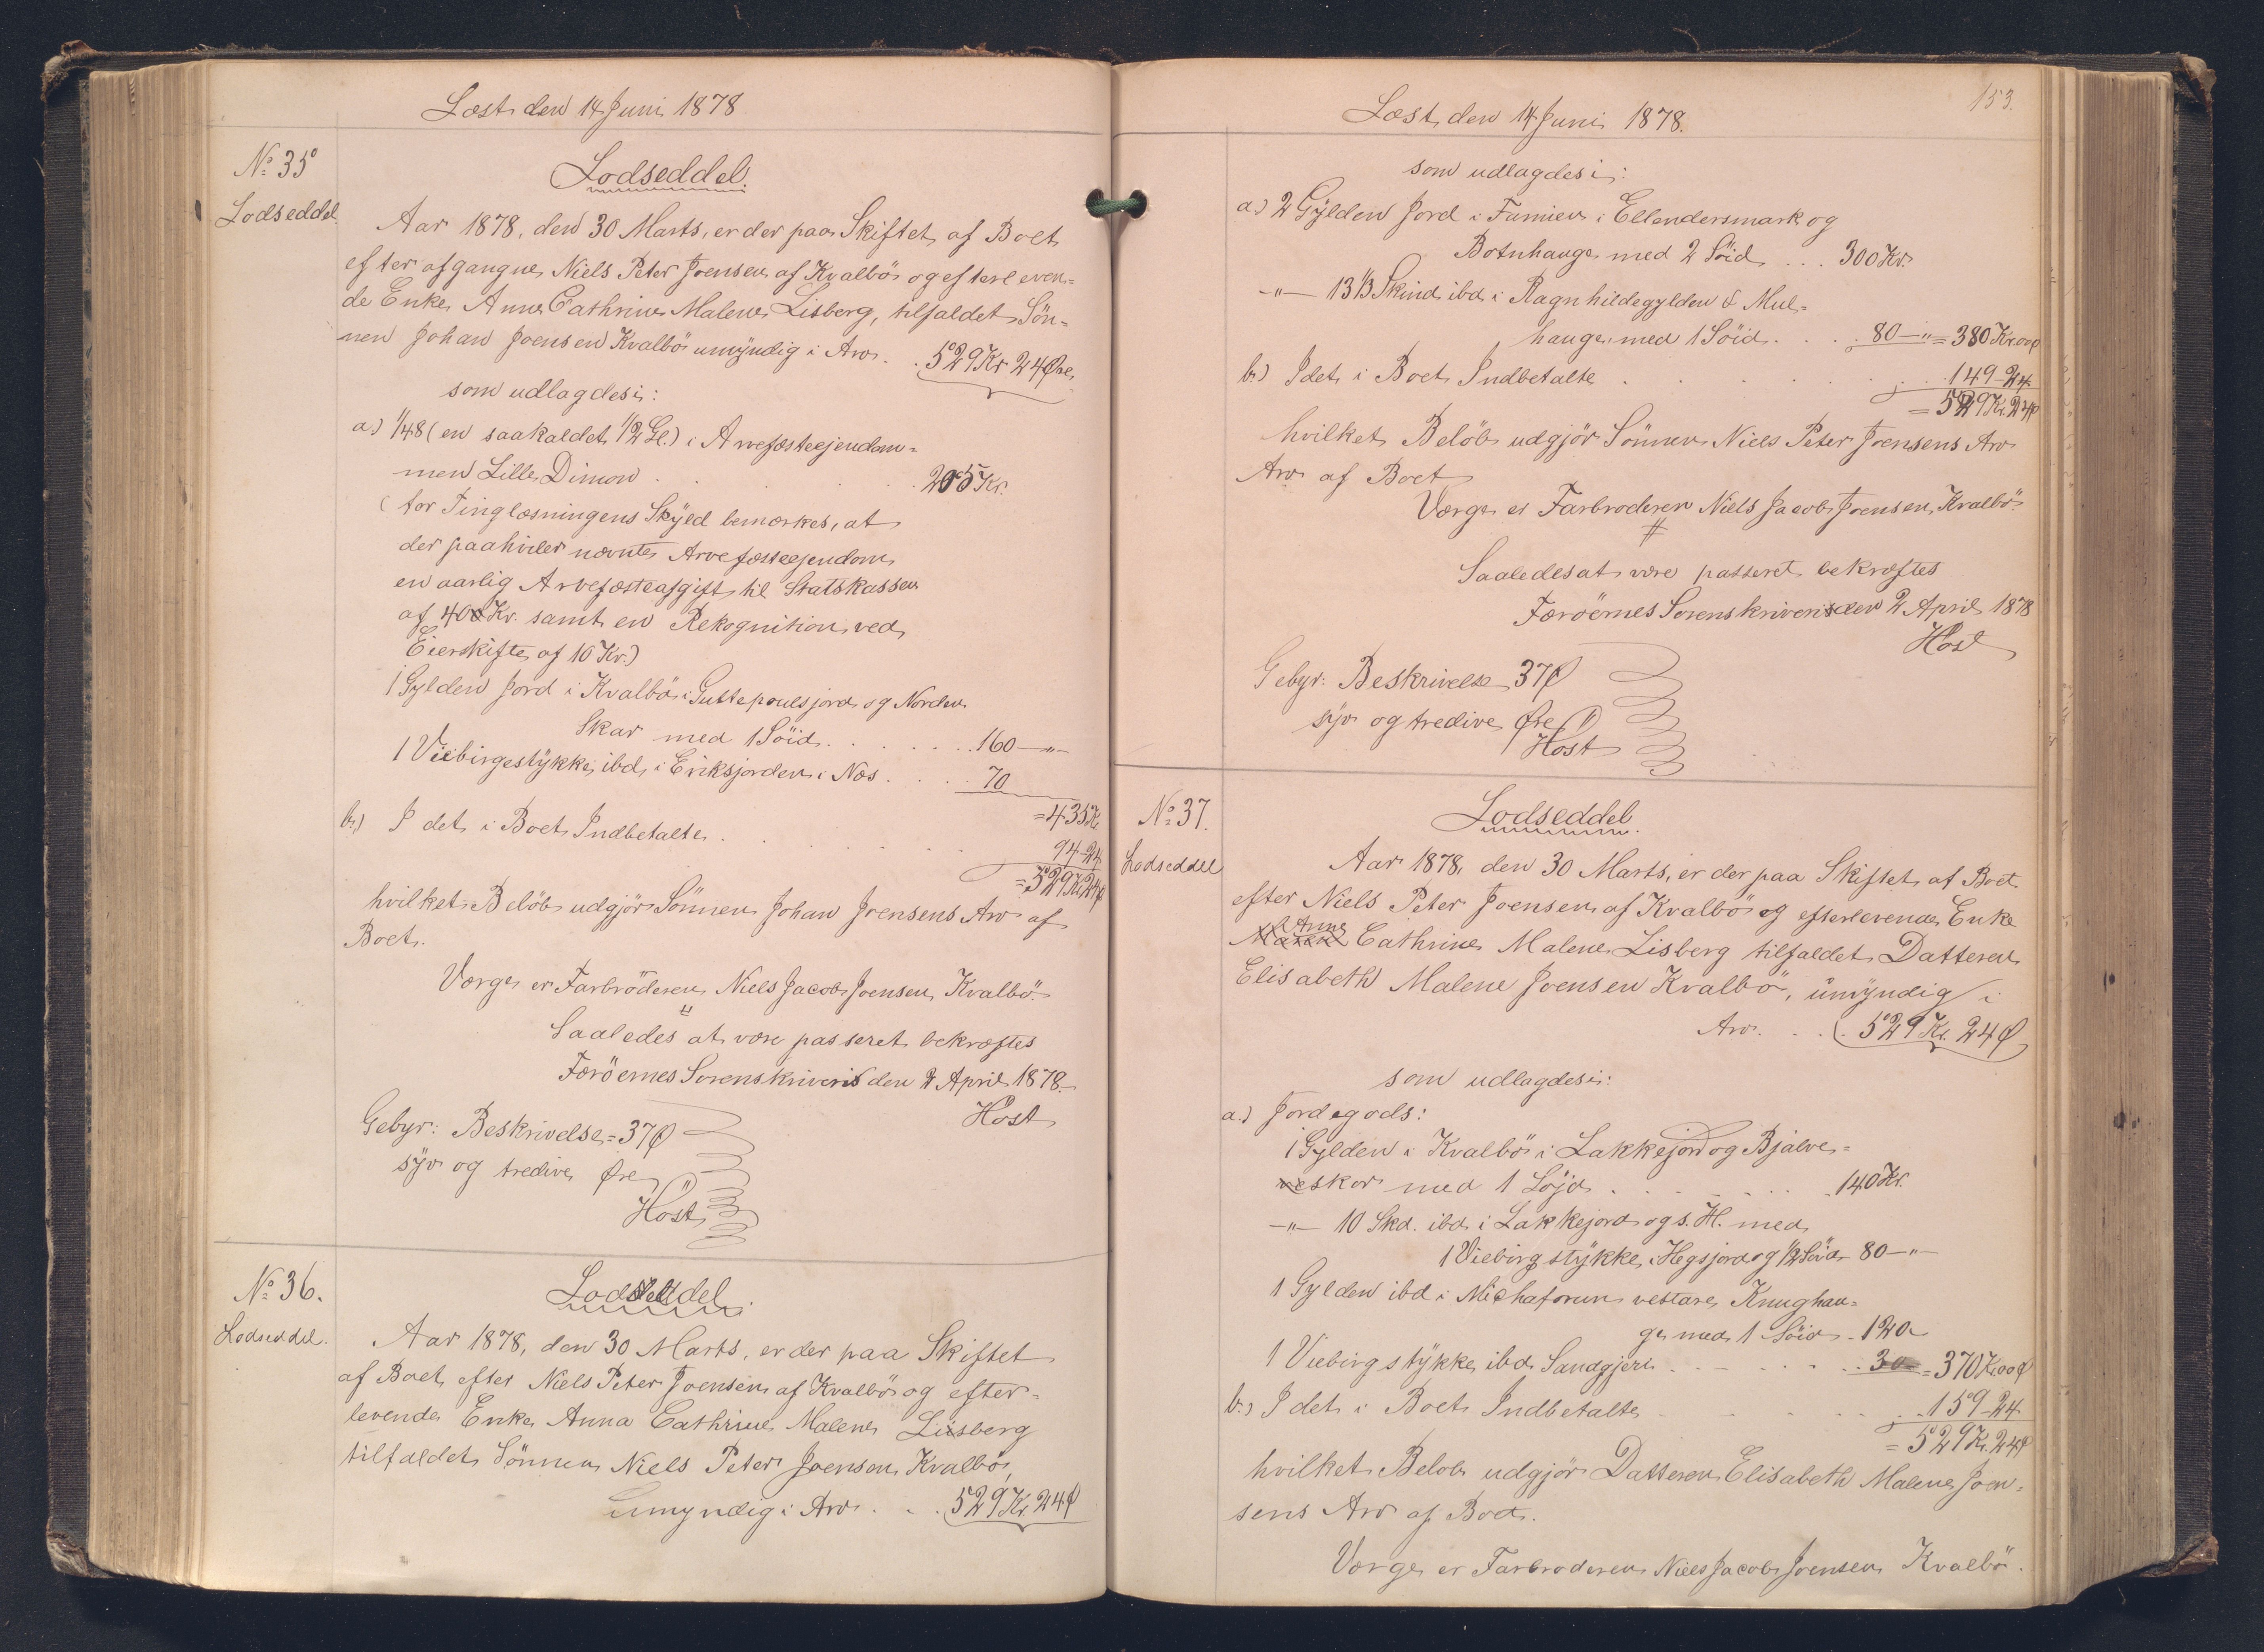 Læst den 14 Juni 1878
No 35
Lodseddel
Lodseddel.
Aar 1878, den 30 Marts, er der paa Skiftet af Boet
efter afgangne Niels Peter Joensen af Kvalbö og efterleven=
de Enke Anne Cathrine Malene Lisberg, tilfaldet Sön=
nen Johan Joensen Kvalbö umyndig i Arv . . 529 Kr 24 Øre
som udlagdes i:
a.) 1/48 (en saakaldet 1/2 Gl.) i Arvefæsteejendom=
men Lille Dimon . . . 205 Kr.
(for Tinglæsningens Skyld bemærkes, at
der paahviler nævnte Arvefæsteejendom
en aarlig Arvefæsteafgift til Statskassen
af 400 Kr. samt en Rekognition ved
Eierskifte af 10 Kr.)
1 Gylden Jord i Kvalbö i Guttepoulsjord og Norden
Skar med 1 Söid . . . . . 160 — " —
1 Viebirgestykke ibd. i Eriksjorden i Næs . . . 70
= 435 Kr
b.) I det i Boet Indbetalte . . . . . 94 - 24
= 529 Kr 24 Ø
hvilket Belöb udgjör Sönnen Johan Joensens Arv af
Boet.
Værge er Farbröderen Niels Jacob Joensen, Kvalbö.
Saaledes at være passeret bekræftes
Færöernes Sorenskriveri den 2 April 1878.
Höst
Gebyr: Beskrivelse = 37 Ø
syv og tredive Øre
Höst
No 36.
Lodseddel.
Lodseddel.
Aar 1878, den 30 Marts, er der paa Skiftet
af Boet efter Niels Peter Joensen af Kvalbö og efter=
levende Enke Anna Cathrine Malene Lisberg
tilfaldet Sönnen Niels Peter Joensen Kvalbö,
umyndig i Arv . . . 529 Kr. 24 Ø
153.
Læst den 14 Juni 1878.
som udlagdes i:
a.) 2 Gylden Jord i Famien i Ellendersmark og
Botnhauge med 2 Söid . . . 300 Kr.
— " — 13 1/3 Skind ibd i Ragnhildegylden & Mul=
hauge med 1 Söid . . . . 80 — " = 380 Kr. 00 Ø
b.) I det i Boet Indbetalte . . . . . 149 - 24
= 529 Kr. 24 Ø
hvilket Belöb udgjör Sönnen Niels Peter Joensens Arv
Arv af Boet
Værge er Farbroderen Niels Jacob Joensen, Kvalbö
Saaledes at være passeret bekræftes
Færöernes Sorenskriveri den 2 April 1878
Höst
Gebyr: Beskrivelse 37 Ø
syv og tredive Øre
Höst
No 37.
Lodseddel
Lodseddel.
Aar 1878, den 30 Marts, er der paa Skiftet af Boet
efter Niels Peter Joensen af Kvalbö og efterlevende Enke
Anne
Cathrine Malene Lisberg tilfaldet Datteren
Elisabeth Malene Joensen Kvalbö, umyndig i
Arv . . . 529 Kr. 24 Ø
som udlagdes i:
a.) Jordegods:
1 Gylden i Kvalbö i Lakkejord og Bjalve=
skor med 1 Söjd . . . . . 140 Kr.
— " — 10 Skd. ibd i Lakkejord og s. H. med
1 Viebirgstykke i Hegsjord og 1/2 Söid 80 — " —
1 Gylden ibd i Michaforum vestare Knughau=
ge med 1 Söid . 120 -
1 Viebirgstykke ibd Sandgjeri . . . . . 30 - = 370 Kr. 00 Ø
b.) I det i Boet Indbetalte . . . . . 159 - 24
= 529 Kr. 24 Ø
hvilket Belöb udgjör Datteren Elisabeth Malene Joen=
sens Arv af Boet.
Værge er Farbroderen Niels Jacob Joensen Kvalbö.